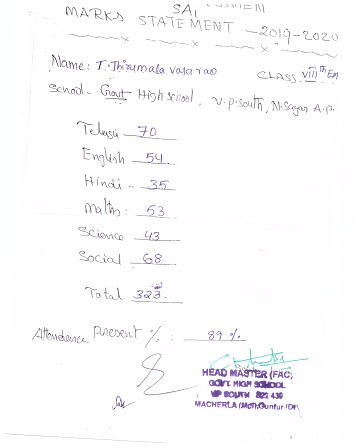 SA1
MARKS STATEMENT - 2019-2020
Name: T. Thirumala vasa rao CLASS. VIIIth EM
School - Govt High school, V.p. South, N. Sagar A.P.
Telugu 70
English 54
Hindi .. 35
Maths: 53
Science 43
Social 68
Total 323
Attendence Present %: 89 %.
HEAD MASTER (FAC)
GOVT. HIGH SCHOOL
VP SOUTH 522 439
MACHERLA (Md) Guntur (Dt)